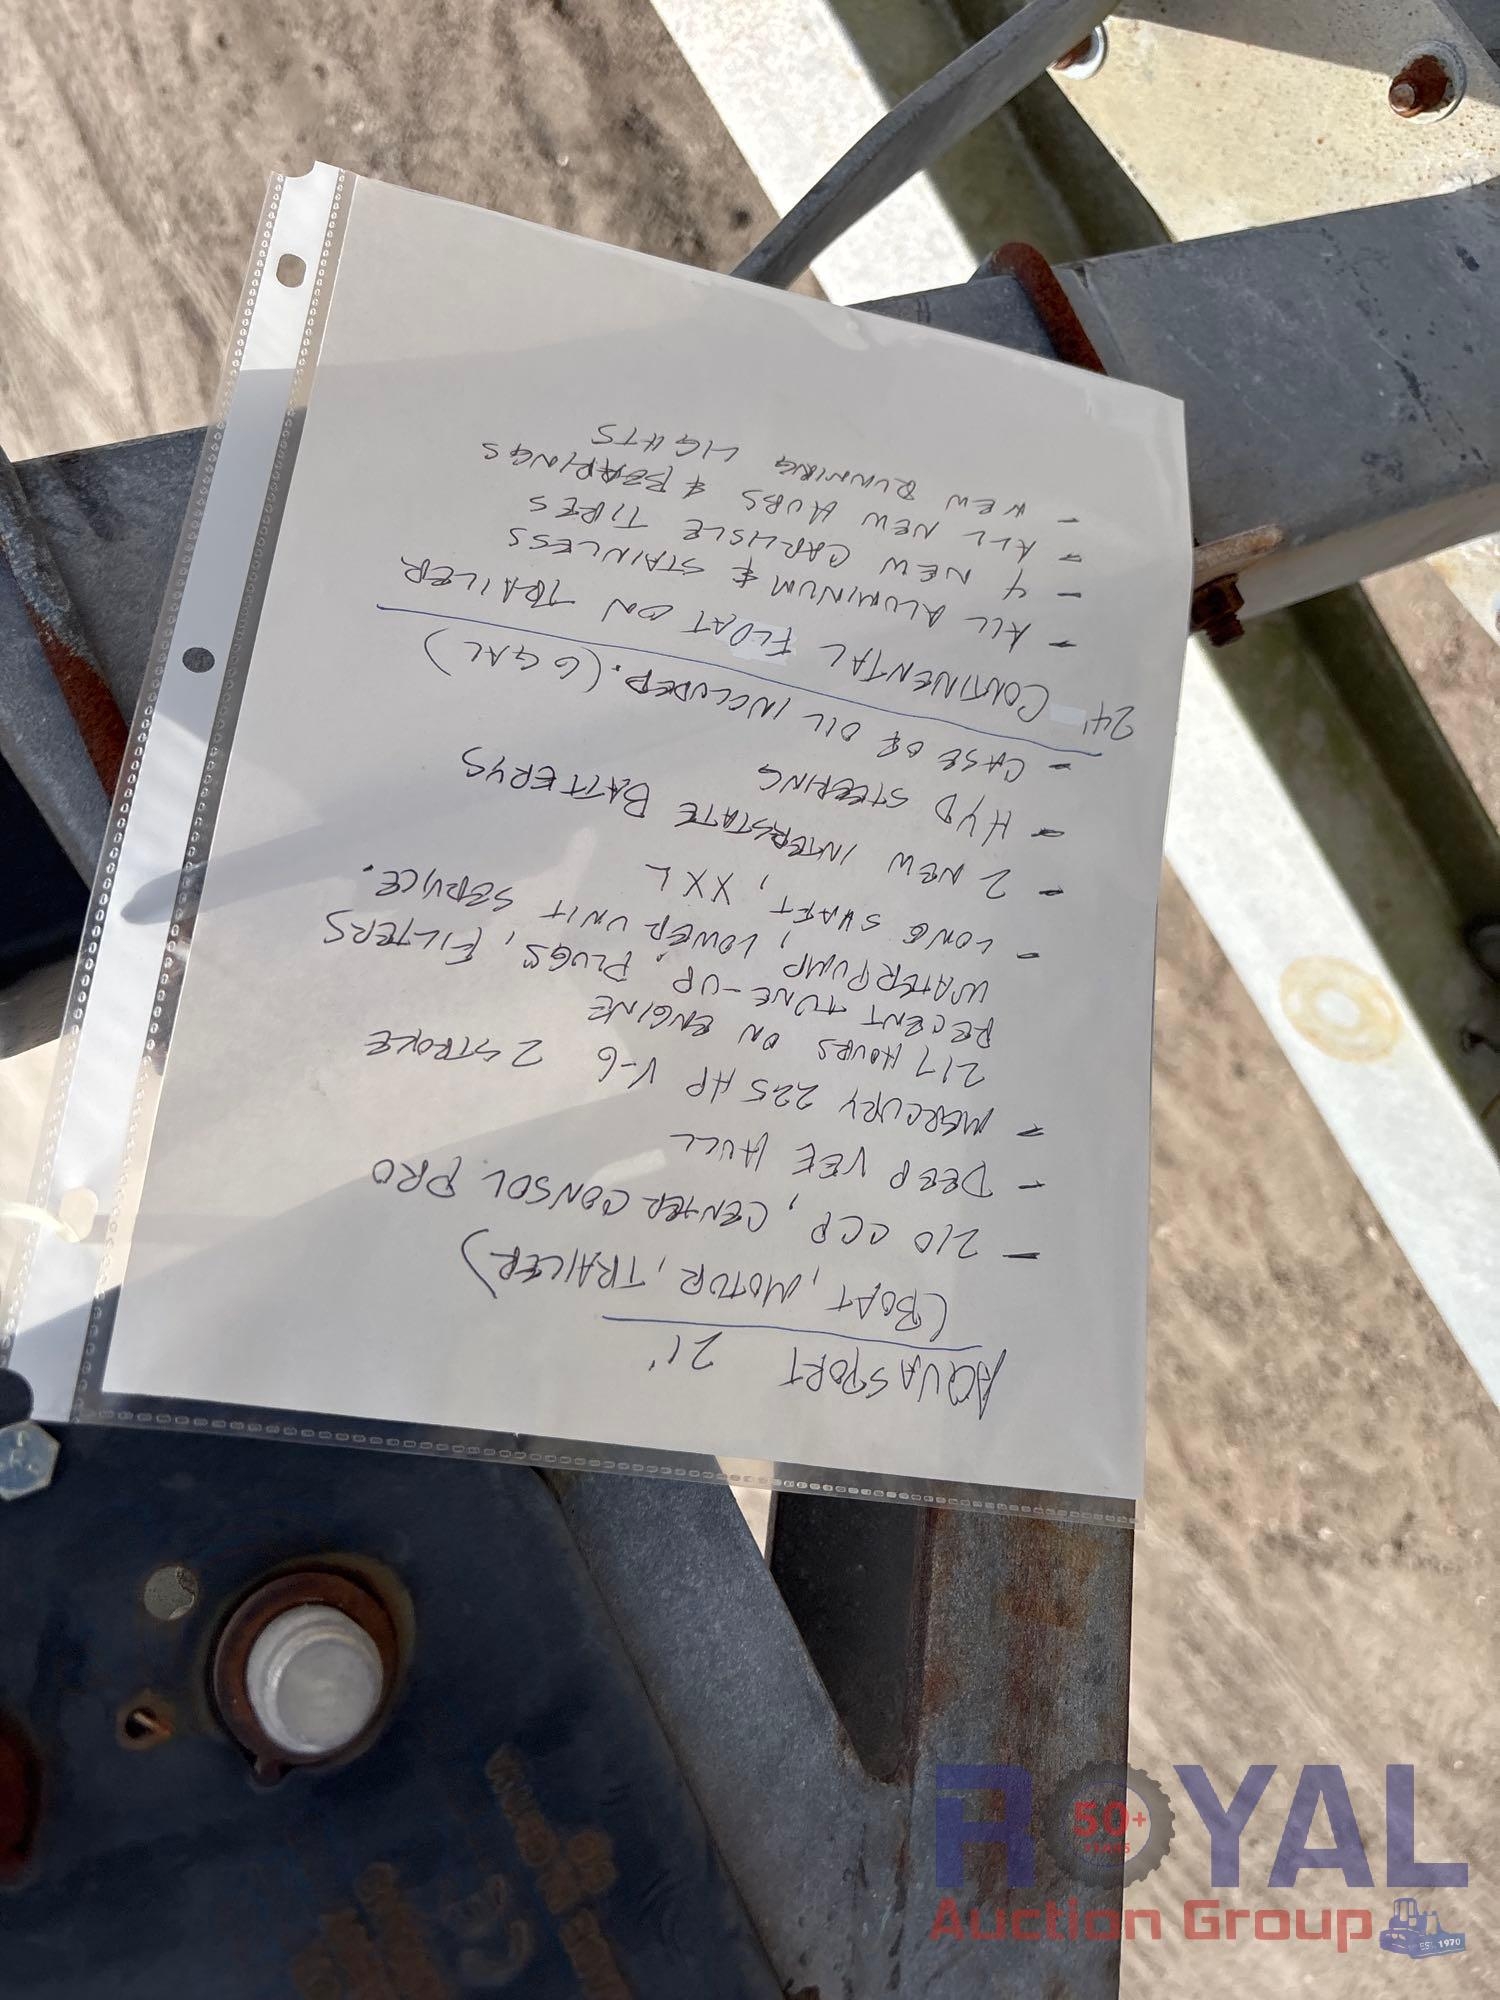 AQUASPORT 21'
(BOAT, MOTOR, TRAILER)
- 210 CCP, CENTER CONSOL PRO
- DEEP VEE HULL
- MERCURY 225 HP V-6 2 STROKE
217 HOURS ON ENGINE
RECENT TUNE-UP. PLUGS, FILTERS
WATERPUMP, LOWER UNIT SERVICE.
- LONG SHAFT, XXL
- 2 NEW INTERSTATE BATTERYS
- HYD STEERING
- CASE OF OIL INCLUDED. (6 GAL)
24' CONTINENTAL FLOAT ON TRAILER
- ALL ALUMINUM & STAINLESS
- 4 NEW CARLISLE TIRES
- ALL NEW HUBS & BEARINGS
- NEW RUNNING LIGHTS
ROYAL
50+
YEARS
Auction Group
EST. 1970